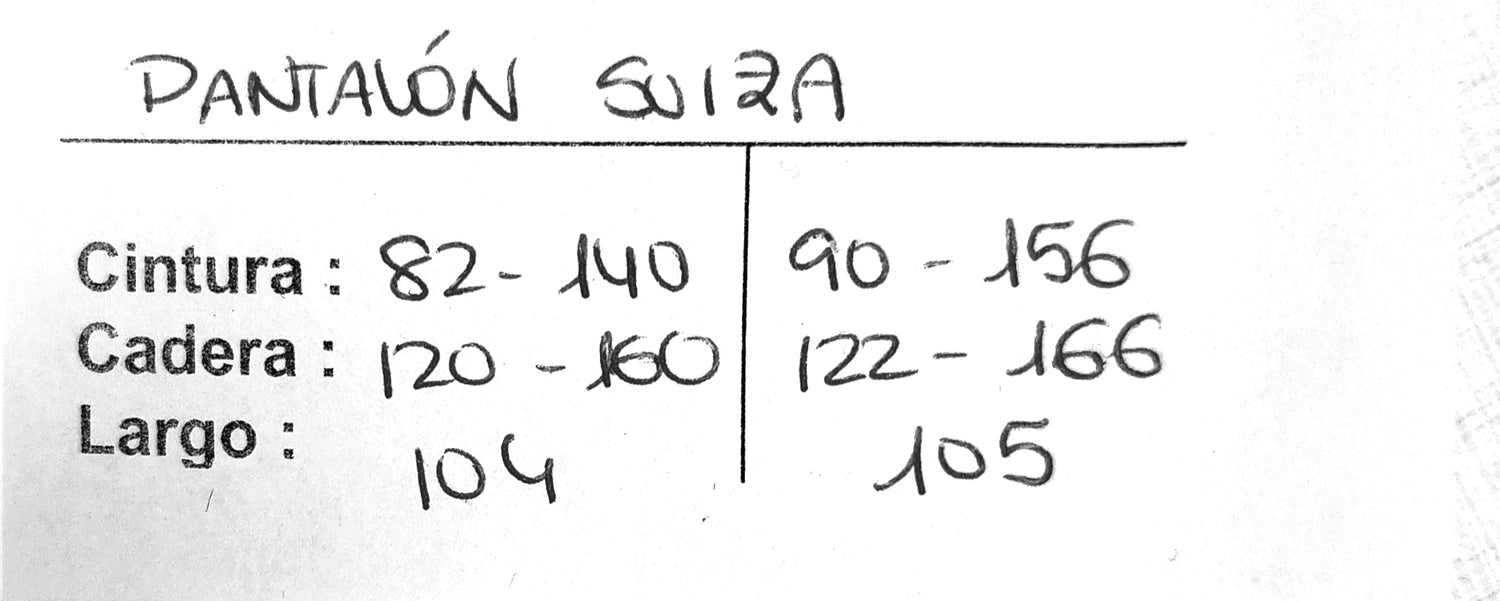 PANTALÓN SUIZA
Cintura : 82 - 140 90 - 156
Cadera : 120 - 160 122 - 166
Largo : 104 105